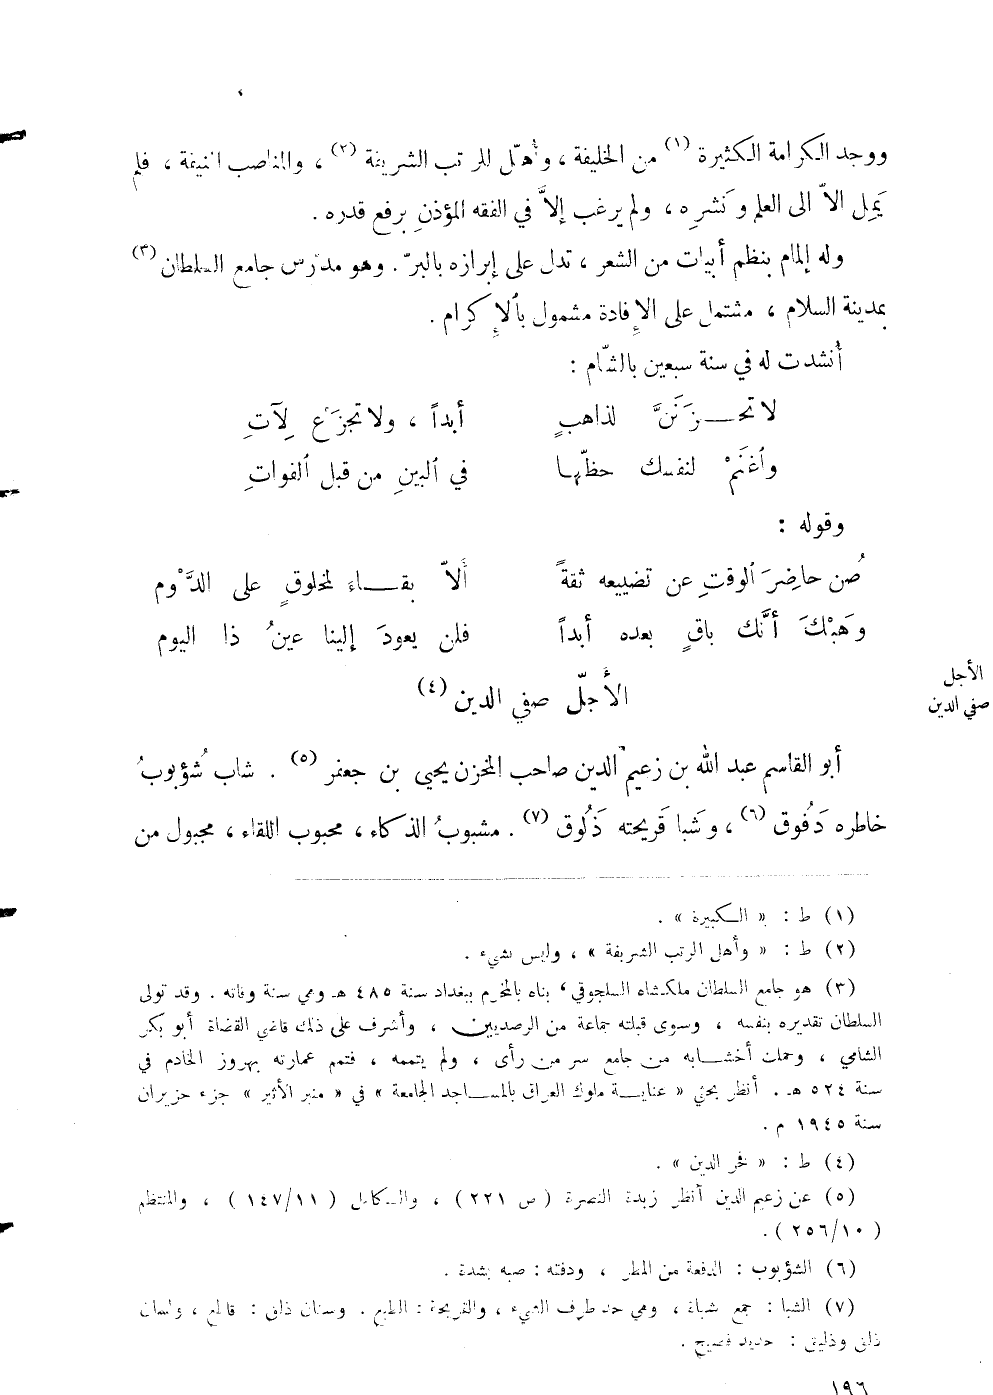 ووجد الكرامة الكثيرة (١) من الخليفة ، وأُهّل للرتب الشريفة (٢) ، والمناصب المنيفة ، فلم
يَمِل الاّ الى العلم وَنشرِه ، ولم يرغب إلاَّ في الفقه المؤذنِ برفع قدره .
وله إلمام بنظم أبيات من الشعر ، تدل على إبرازه بالبرّ . وهو مدرّس جامع السلطان (٣)
بمدينة السلام ، مشتمل على الإفادة مشمول بألإكرام .
أُنشدت له في سنة سبعين بالشّام :
لا تحـــزَنَنَّ لذاهبٍ أبداً ، ولا تجزَعْ لِآتِ
وأغنَمْ لنفسك حظّها في ألبينِ من قبل ألفواتِ
وقوله :
صُن حاضِرَ ألوقتِ عن تضييعه ثقةً ألاّ بقـــاءَ لمخلوقٍ على الدَّوْم
وَهبْكَ أنَّك باقٍ بعده أبداً فلن يعودَ إلينا عينُ ذا اليوم
الأجل
الأَجلّ صفي الدين (٤)
صفي الدين
أبو القاسم عبد الله بن زعيم الدين صاحب المخزن يحيى بن جعفر (٥) . شاب شُؤبوبُ
خاطره دَفُوق (٦) ، وَشبا قَريحته ذَلُوق (٧) . مشبوبُ الذكاء ، محبوب اللقاء ، مجبول من
(١) ط : « الكبيرة » .
(٢) ط : « وأهل الرتب الشريفة » ، وليس بشيء .
(٣) هو جامع السلطان ملكشاه السلجوقي ، بناه بالمخرم ببغداد سنة ٤٨٥ هـ وهي سنة وفاته . وقد تولى
السلطان تقديره بنفسه ، وسوى قبلته جماعة من الرصديين ، وأشرف على ذلك قاضي القضاة أبو بكر
الشامي ، وحملت أخشـــابه من جامع سر من رأى ، ولم يتممه ، فتمم عمارته بهروز الخادم في
سنة ٥٢٤ هـ . أنظر بحثي « عنايـــة ملوك العراق بالمســـاجد الجامعة » في « منبر الأثير » جزء حزيران
سنة ١٩٤٥ م .
(٤) ط : « فخر الدين » .
(٥) عن زعيم الدين أنظر زبدة النصرة ( ص ٢٢١ ) ، والـكامل ( ١٤٧/١١ ) ، والمنتظم
( ٢٥٦/١٠ ) .
(٦) الشؤبوب : الدفعة من المطر ، ودفقه : صبه بشدة .
(٧) الشبا : جمع شباة ، وهي حد طرف الشيء ، والقريحة : الطبع . وسنان ذلق : قاطع ، ولسان
ذلق وذليق : حديد فصيح .
١٩٦